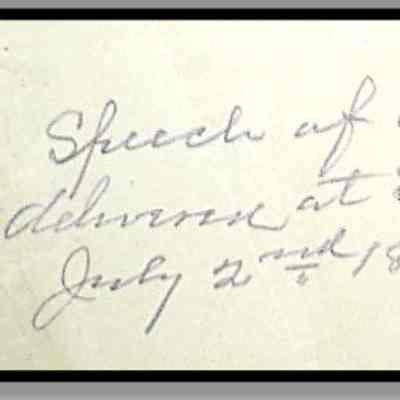 Speech of
delivered at
July 2nd, 18